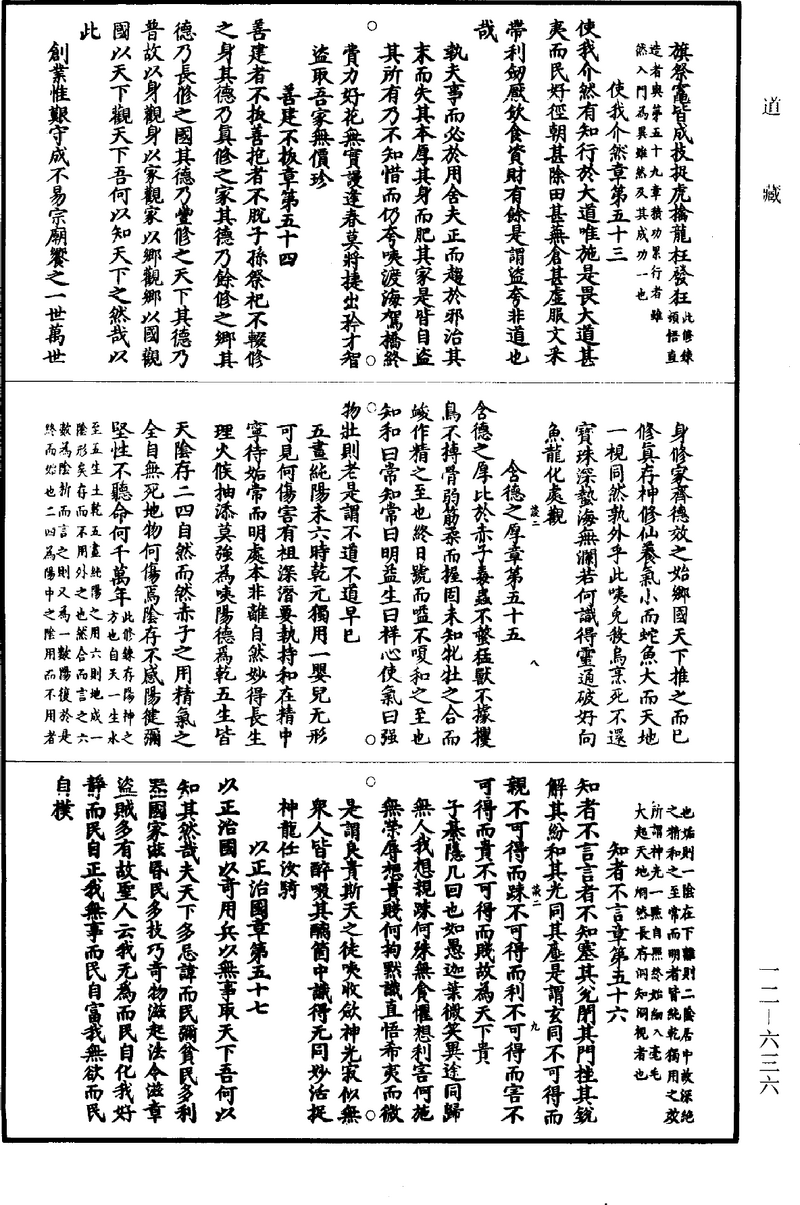 道藏
旗祭竈皆成技捉虎擒龍枉發狂此修鍊頓悟直
造者與第五十九章積功累行者雖
然入門為異雖然及其成功一也
使我介然章第五十三
使我介然有知行於大道唯施是畏大道甚
夷而民好徑朝甚除田甚蕪倉甚虛服文釆
帶利劒厭飲食資財有餘是謂盜夸非道也
哉
執夫事而必於用舍夫正而趨於邪治其
末而失其本厚其身而肥其家是皆自盜
其所有乃不知惜而仍夸唉渡海駕橋終
費力好花無實謾逢春莫將捷出矜才智
盜取吾家無價珍
善建不拔章第五十四
善建者不拔善抱者不脫子孫祭祀不輟修
之身其德乃真修之家其德乃餘修之鄉其
德乃長修之國其德乃豐修之天下其德乃
普故以身觀身以家觀家以鄉觀鄉以國觀
國以天下觀天下吾何以知天下之然哉以
此
創業惟艱守成不易宗廟饗之一世萬世
身修家齊德效之始鄉國天下推之而已
修真存神修仙養氣小而蛇魚大而天地
一視同然孰外乎此唉兔教烏烹死不還
寶珠深蟄海無瀾若何識得靈通破好向
魚龍化處觀
談二
八
含德之厚章第五十五
含德之厚比於赤子毒蟲不螫猛獸不據攫
鳥不搏骨弱筋柔而握固未知牝牡之合而
峻作精之至也終日號而嗌不嗄和之至也
知和曰常知常曰明益生曰祥心使氣曰强
物壯則老是謂不道不道早已
五畫純陽未六時乾元獨用一嬰兒无形
可見何傷害有祖深潛要執持和在精中
寧待姤常而明處本非離自然妙得長生
理火候抽添莫強為唉陽德為乾五生皆
天陰存二四自然而然赤子之用精氣之
全自無死地物何傷焉陰存不感陽徤彌
堅性不聽命何千萬年此修鍊存陽神之
方也自天一生水
至五生土乾五畫純陽之用六則地成一
陰形矣存而不用外之也然合而言之六
數為陰析而言之則又為一數陽復於是
終而始也二四為陽中之陰用而不用者
也姤則一陰在下離則二陰居中故深絕
之精和之至常而明者皆純乾獨用之效
所謂神光一點自照終始細入毫毛
大超天地炯然長存洞知洞視者也
知者不言章第五十六
知者不言言者不知塞其兌閉其門挫其銳
解其紛和其光同其塵是謂玄同不可得而
談二
九
親不可得而踈不可得而利不可得而害不
可得而貴不可得而賤故為天下貴
子綦隱几回也如愚迦葉微笑異途同歸
無人我想親踈何殊無貪懼想利害何施
無榮辱想貴賤何拘默識直悟希夷而微
是謂良貴斯天之徒唉收歛神光寂似無
衆人皆醉啜其醨箇中識得元同妙活捉
神龍任汝騎
以正治國章第五十七
以正治國以奇用兵以無事取天下吾何以
知其然哉夫天下多忌諱而民彌貧民多利
噐國家滋昏民多技巧奇物滋起法令滋章
盜賊多有故聖人云我无為而民自化我好
靜而民自正我無事而民自富我無欲而民
自樸
一二—六三六